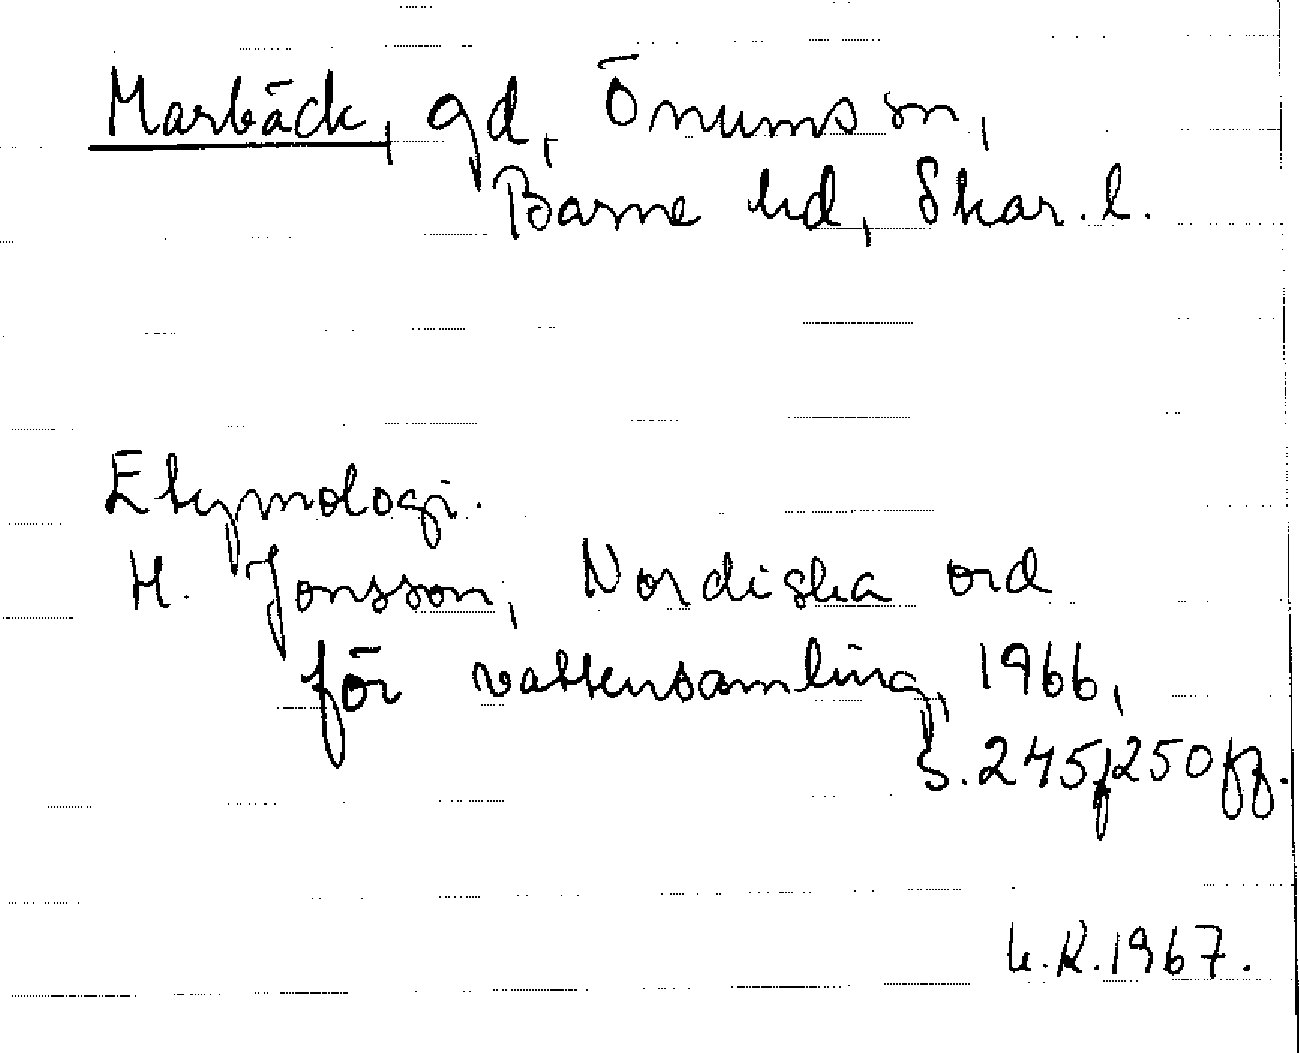 Marbäck, gd, Önums sn,
Barne hd, Skar. l.
Etymologi.
H. Jonsson, Nordiska ord
för vattensamling, 1966,
s. 245f, 250 ff.
K.R. 1967.